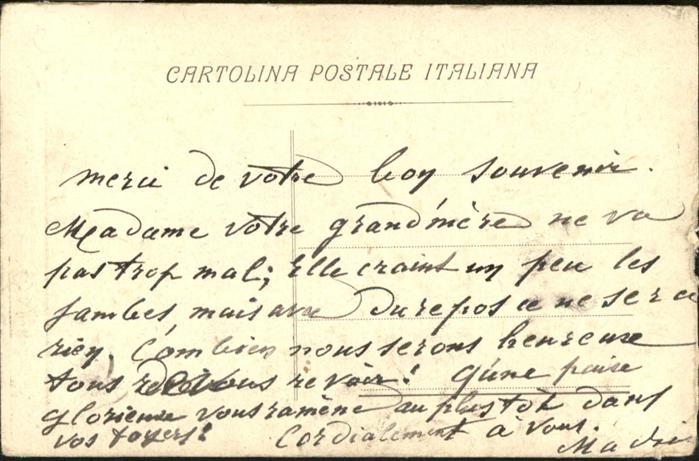 CARTOLINA POSTALE ITALIANA
merci de votre bon souvenir.
Madame votre grand'mère ne va
pas trop mal; Elle craint un peu les
jambes mais avec du repos ce ne sera
rien. Combien nous serons heureuse
tous de vous revoir! Qu'une paise
glorieuse vous ramène au plus tôt dans
vos foyers! Cordialement à vous.